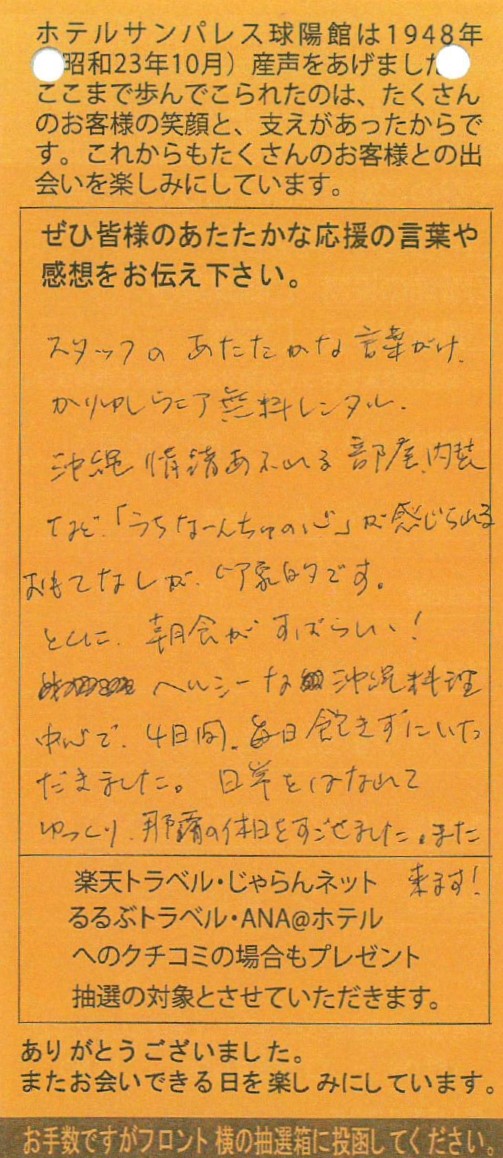 ホテルサンパレス球陽館は1948年
昭和23年10月）産声をあげました
ここまで歩んでこられたのは、たくさん
のお客様の笑顔と、支えがあったからで
す。これからもたくさんのお客様との出
会いを楽しみにしています。
ぜひ皆様のあたたかな応援の言葉や
感想をお伝え下さい。
スタッフの あたたかな 言葉がけ、
かりゆしウェア無料レンタル、
沖縄情緒あふれる 部屋、内装
など、「うちなーんちゅの心」が感じられる
おもてなしが、印象的です。
とくに、朝食がすばらしい！
ヘルシーな 沖縄料理
中心で、4日間、毎日飽きずにいた
だきました。日常をはなれて
ゆっくり、那覇の休日をすごせました。また
来ます！
楽天トラベル・じゃらんネット
るるぶトラベル・ANA@ホテル
へのクチコミの場合もプレゼント
抽選の対象とさせていただきます。
ありがとうございました。
またお会いできる日を楽しみにしています。
お手数ですがフロント横の抽選箱に投函してください。